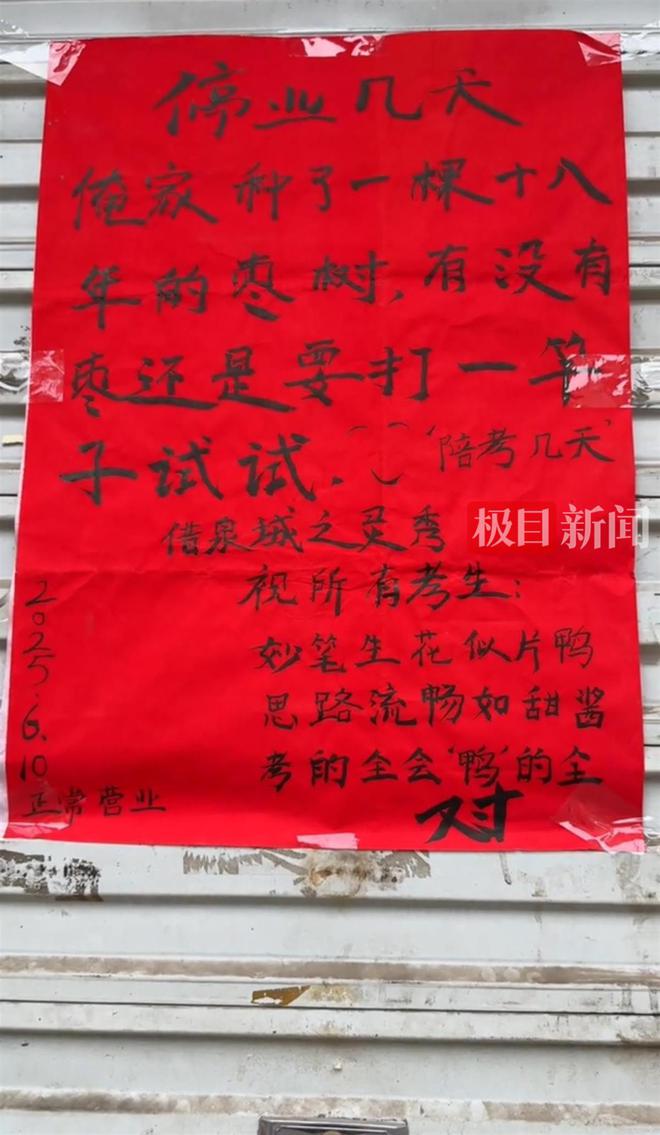 停业几天
俺家种了一棵十八
年的枣树,有没有
枣还是要打一竿
子试试.“陪考几天”
借泉城之灵秀
祝所有考生:
妙笔生花似片鸭
思路流畅如甜酱
考的全会'鸭'的全
对
2025.6.10
正常营业
极目新闻